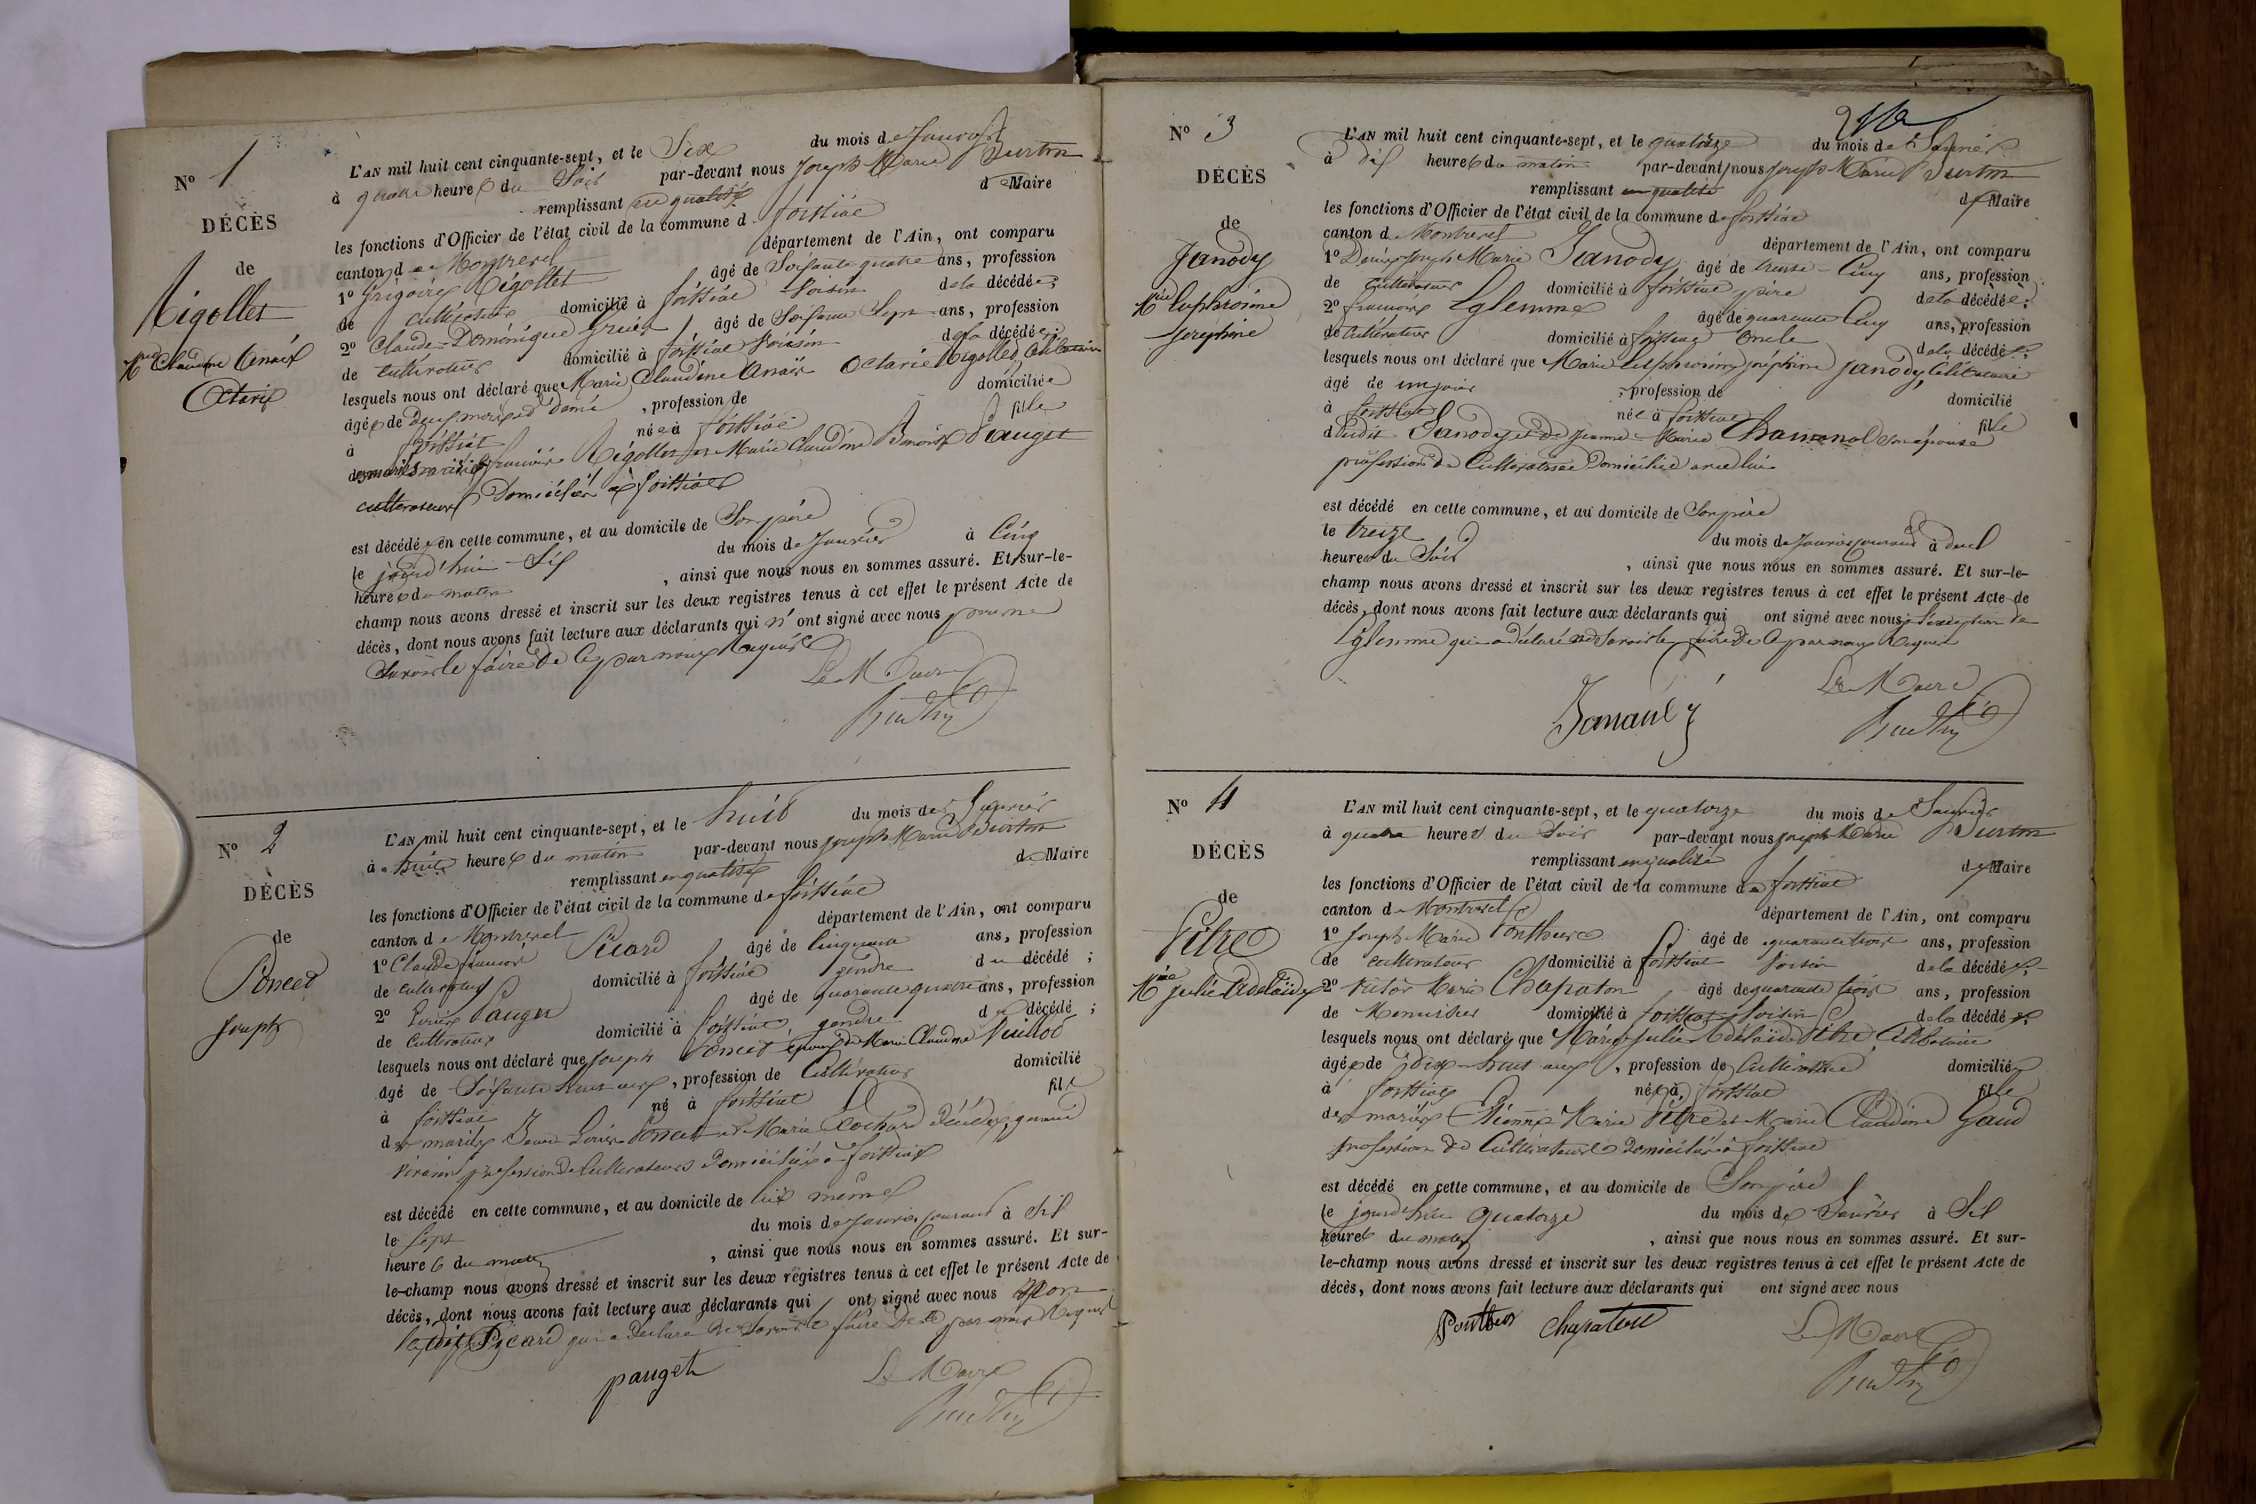 N° 1
DÉCÈS
de
Rigollet
Mie Claudine Anaïs
Octavie
L'AN mil huit cent cinquante-sept, et le Six du mois de Janvier
à quatre heures du Soir par-devant nous Joseph Marie Burtin
remplissant en qualité de Maire
les fonctions d'Officier de l'état civil de la commune de foissiat
canton de Montrevel département de l'Ain, ont comparu
1° Grégoire Rigollet âgé de Soixante quatre ans, profession
de cultivateur domicilié à foissiat Voisin de la décédée;
2° Claude-Dominique âgé de Soixante Sept ans, profession
de cultivateur domicilié à foissiat Voisin de la décédée;
lesquels nous ont déclaré que Marie Claudine Anaïs Octavie Rigollet, Célibataire
âgée de deux mois et demi, profession de domiciliée
à foissiat née à foissiat fille
des mariés françois Rigollet et Marie Claudine Pauget
cultivateurs Domiciliés à foissiat
est décédée en cette commune, et au domicile de Son père
le jourd'hui Six du mois de Janvier à Cinq
heures du matin, ainsi que nous nous en sommes assuré. Et sur-le-
champ nous avons dressé et inscrit sur les deux registres tenus à cet effet le présent Acte de
décès, dont nous avons fait lecture aux déclarants qui n'ont signé avec nous pour ne
Savoir le faire De Ce par nous Requis
Le Maire
N° 2
DÉCÈS
de
Poncet
Joseph
L'AN mil huit cent cinquante-sept, et le huit du mois de Janvier
à huit heures du matin par-devant nous Joseph Marie Burtin
remplissant en qualité de Maire
les fonctions d'Officier de l'état civil de la commune de foissiat
canton de Montrevel département de l'Ain, ont comparu
1° Claude françois Picard âgé de Cinquante ans, profession
de cultivateur domicilié à foissiat gendre du décédé;
2° Pauget âgé de quarante quatre ans, profession
de Cultivateur domicilié à foissiat gendre du décédé;
lesquels nous ont déclaré que Joseph Poncet époux de Marie Claudine Vuillod
âgé de Soixante ans, profession de Cultivateur domicilié
à foissiat né à foissiat fils
des mariés Poncet et Marie Décédés, quand
profession De Cultivateurs Domiciliés à foissiat
est décédé en cette commune, et au domicile de lui même
le Sept du mois de Janvier courant à Six
heures du matin, ainsi que nous nous en sommes assuré. Et sur-
le-champ nous avons dressé et inscrit sur les deux registres tenus à cet effet le présent Acte de
décès, dont nous avons fait lecture aux déclarants qui ont signé avec nous
Picard qui a Déclaré ne Savoir le faire De Ce par nous Requis
pauget
Le Maire
N° 3
DÉCÈS
de
Janody
Mie Euphrosine
Josephine
L'AN mil huit cent cinquante-sept, et le quatorze du mois de Janvier
à dix heures du matin par-devant nous Joseph Marie Burtin
remplissant en qualité de Maire
les fonctions d'Officier de l'état civil de la commune de foissiat
canton de Montrevel département de l'Ain, ont comparu
1° Denis Joseph Marie Janody âgé de trente-Cinq ans, profession
de Cultivateur domicilié à foissiat père de la décédée;
2° françois Eglemme âgé de quarante Cinq ans, profession
de Cultivateur domicilié à foissiat Oncle de la décédée;
lesquels nous ont déclaré que Marie Euphrosine Joséphine Janody, Célibataire
âgé de un jour, profession de domicilié
à foissiat née à foissiat fille
dudit Janody et De Jeanne-Marie son épouse
profession de Cultivatrice Domiciliée avec lui
est décédé en cette commune, et au domicile de Son père
le treize du mois de Janvier courant à deux
heures du Soir, ainsi que nous nous en sommes assuré. Et sur-le-
champ nous avons dressé et inscrit sur les deux registres tenus à cet effet le présent Acte de
décès, dont nous avons fait lecture aux déclarants qui ont signé avec nous à l'exception de
Eglemme qui a déclaré ne Savoir le faire De Ce par nous Requis
Le Maire
N° 4
DÉCÈS
de
Vitre
Mie Julie Adélaïde
L'AN mil huit cent cinquante-sept, et le quatorze du mois de Janvier
à quatre heures du Soir par-devant nous Joseph Marie Burtin
remplissant en qualité de Maire
les fonctions d'Officier de l'état civil de la commune de foissiat
canton de Montrevel département de l'Ain, ont comparu
1° Joseph Marie Ponthus âgé de quarante trois ans, profession
de cultivateur domicilié à foissiat Voisin de la décédée;
2° Victor Marie Chapaton âgé de quarante trois ans, profession
de Menuisier domicilié à foissiat Voisin de la décédée;
lesquels nous ont déclaré que Marie Julie Adélaïde Vitre, Célibataire
âgée de dix-huit ans, profession de Cultivatrice domiciliée
à foissiat née à foissiat fille
des mariés Etienne Marie Vitre et Marie Claudine Gaud
profession De Cultivateurs Domiciliés à foissiat
est décédé en cette commune, et au domicile de Son père
le jourd'hui quatorze du mois de Janvier à Six
heures du matin, ainsi que nous nous en sommes assuré. Et sur-
le-champ nous avons dressé et inscrit sur les deux registres tenus à cet effet le présent Acte de
décès, dont nous avons fait lecture aux déclarants qui ont signé avec nous
chapaton
Le Maire